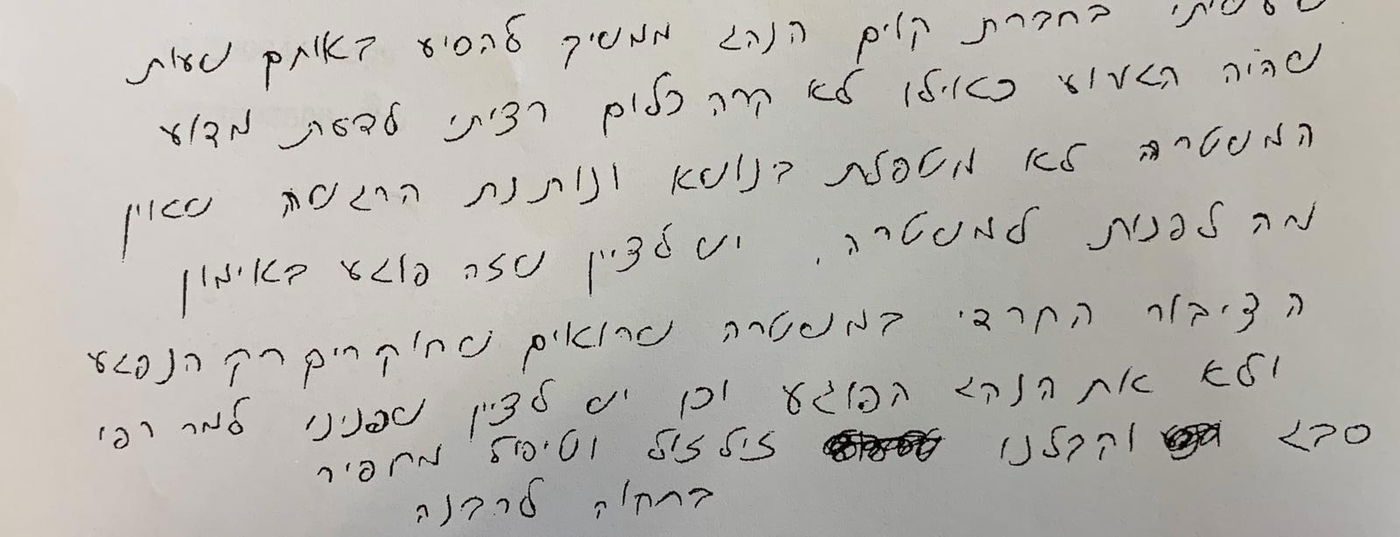 שעשיתי בחברת קוים הנהג ממשיך להסיע באותם שעות
שהיה הגעוע כאילו לא קרה כלום רציתי לדעת מדוע
המשטרה לא מטפלת בנושא ונותנת הרגשה שאין
מה לפנות למשטרה. יש לציין שזה פוגע באימון
הציבור החרדי במשטרה שרואים שחוקרים רק הנפגע
ולא את הנהג הפוגע וכן יש לציין שפנינו למר רפי
סבג וקבלנו זילזול וטיפול מחפיר
בתקוה להבנה